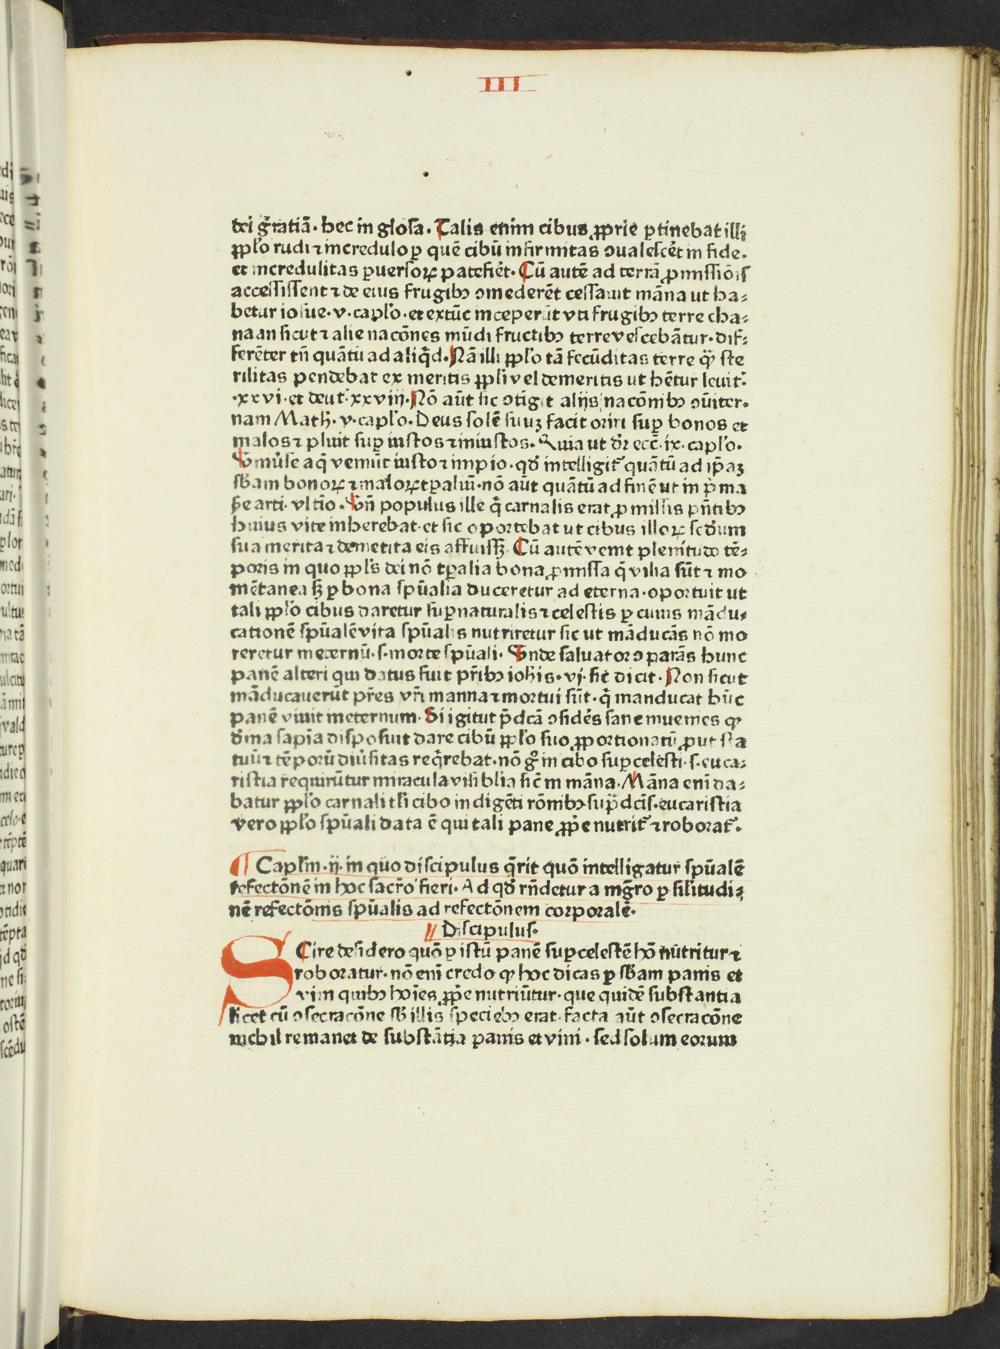 III
dei gr̄atiā · hec in glosa . Talis enim cibus ꝓprie ꝑtinebat illi
ꝓplo rudi ⁊ incredulo ꝑ quē cibū infirmitas ꝯualescēt in fide .
et incredulitas ꝑuersoꝝ patefiēt . Cū autē ad terrā ꝓmissiōis
accessissent ⁊ de eius frugibꝫ ꝯmederēt cessauit māna ut ha⸗
betur iosue · v · caplo . et extūc inceperūt vti frugibꝫ terre cha⸗
naan sicut ⁊ alie nacōnes mūdi fructibꝫ terre vescebāntur . dif⸗
ferēter tn̄ quātū ad aliq̄d . Nā illi ꝓplo tā fecūditas terre ꝙ ste
rilitas pendebat ex meritis ꝓpli vel demeritis ut hētur leuit̄ .
· xxvi · et deut̄ · xxviij · Nō aūt sic ꝯtigit alijs nacōnibꝫ ꝯūiter .
nam Math̄ · v · caplo . Deus solē suuꝫ facit oriri suꝑ bonos et
malos ⁊ pluit suꝑ iustos ⁊ iniustos . Quia ut dr̄ ecc̄ · ix · caplo .
Vniūsa eq̄ veniūt iusto ⁊ impio . qd̄ intelligit̄ quātū ad ip̄aꝫ
sb̄am bonoꝝ ⁊ maloꝝ tꝑaliū . nō aūt quātū ad finē ut in p̄ma
ꝑte arti · vltīo . Vn̄ populus ille q̄ carnalis erat ꝓmissis pn̄tibꝫ
huius vite inherebat . et sic oportebat ut cibus illoꝝ scd̄um
sua merita ⁊ demetita eis affuissꝫ . Cū autē venit plenitudo tē⸗
poris in quo ꝓpl̄s dei nō tꝑalia bona ꝓmissa q̄ vilia sūt ⁊ mo
mētanea sꝫ ꝑ bona spūalia duceretur ad eterna . oportuit ut
tali ꝓplo cibus daretur suꝑnaturalis ⁊ celestis ꝑ cuius mādu⸗
cationē spūalē vita spūalis nutriretur sic ut māducās nō mo
reretur ineternū · s · morte spūali . Vnde saluator ꝯparās hunc
panē alteri qui datus fuit pr̄ibꝫ ioh̄is · vj · sic̄ dicit . Non sicut
māducauerūt pr̄es vr̄i manna ⁊ mortui sūt . q̄ manducat hūc
panē viuit ineternum . Si igitur p̄dcā ꝯsidēs sane inuenies ꝙ
d̄ina sapīa disposuit dare cibū ꝓplo suo ꝓportionatū ꝓut sta
tuū ⁊ tēporū diūsitas req̄rebat . nō gͦ in cibo suꝑcelesti · s · euca⸗
ristia requirūtur miracula visiblia sic̄ in māna . Māna enī da⸗
batur ꝓplo carnali tl̄i cibo indigēti rōnibꝫ sup̄dcīs . eucaristia
vero ꝓplo spūali data ē qui tali pane ꝓpe nutrit̄ ⁊ roborat̄ .
¶ Caplm · ij · in quo discipulus q̄rit quō intelligatur spūalē
refectōnē in hoc sacr̄o fieri . Ad qd̄ rn̄detur a mgr̄o ꝑ silitudi⸗
nē refectōnis spūalis ad refectōnem corporalē .
Discipulus .
SCire desidero quō ꝑ istū panē suꝑcelestē hō nūtritur ⁊
roboratur . nō enī credo ꝙ hoc dicas ꝑ sb̄am panis et
vini quibꝫ hoīes ꝓpe nutriūtur . que quidē substantia
licet cū ꝯsecracōne sb̄ illis speciebꝫ erat . facta aūt ꝯsecracōne
nichil remanet de substātia panis et vini . sed solum eorum